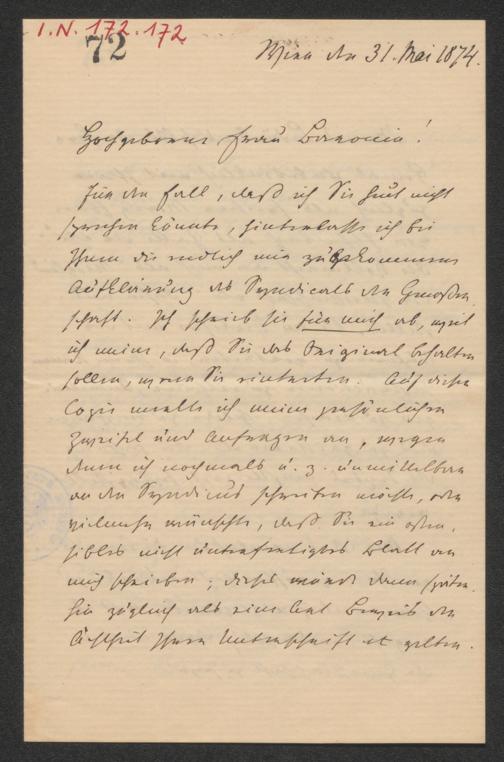 I.N. 172.172
72
Wien den 31. Mai 1874.
Hochgeborene Frau Baronin!
Für den Fall, daß ich Sie heut nicht
sprechen könnte, hinterlasse ich bei
Ihnen die endlich mir zugekommene
Aufklärung des Syndicats der Genossen-
schaft. Ich schrieb sie für mich ab, weil
ich meine, daß Sie das Original behalten
sollen, wenn Sie eintreten. Auf dieser
Copie merkte ich meine persönlichen
Zweifel und Anfragen an, wegen
denen ich nochmals u. z. unmittelbar
an den Syndicus schreiben möchte, oder
vielmehr wünschte, daß Sie ein osten-
sibles nicht unterfertigtes Blatt an
mich schrieben; dieses würde dann später-
hin zugleich als eine Art Beweis der
Ächtheit Ihrer Unterschrift gelten.